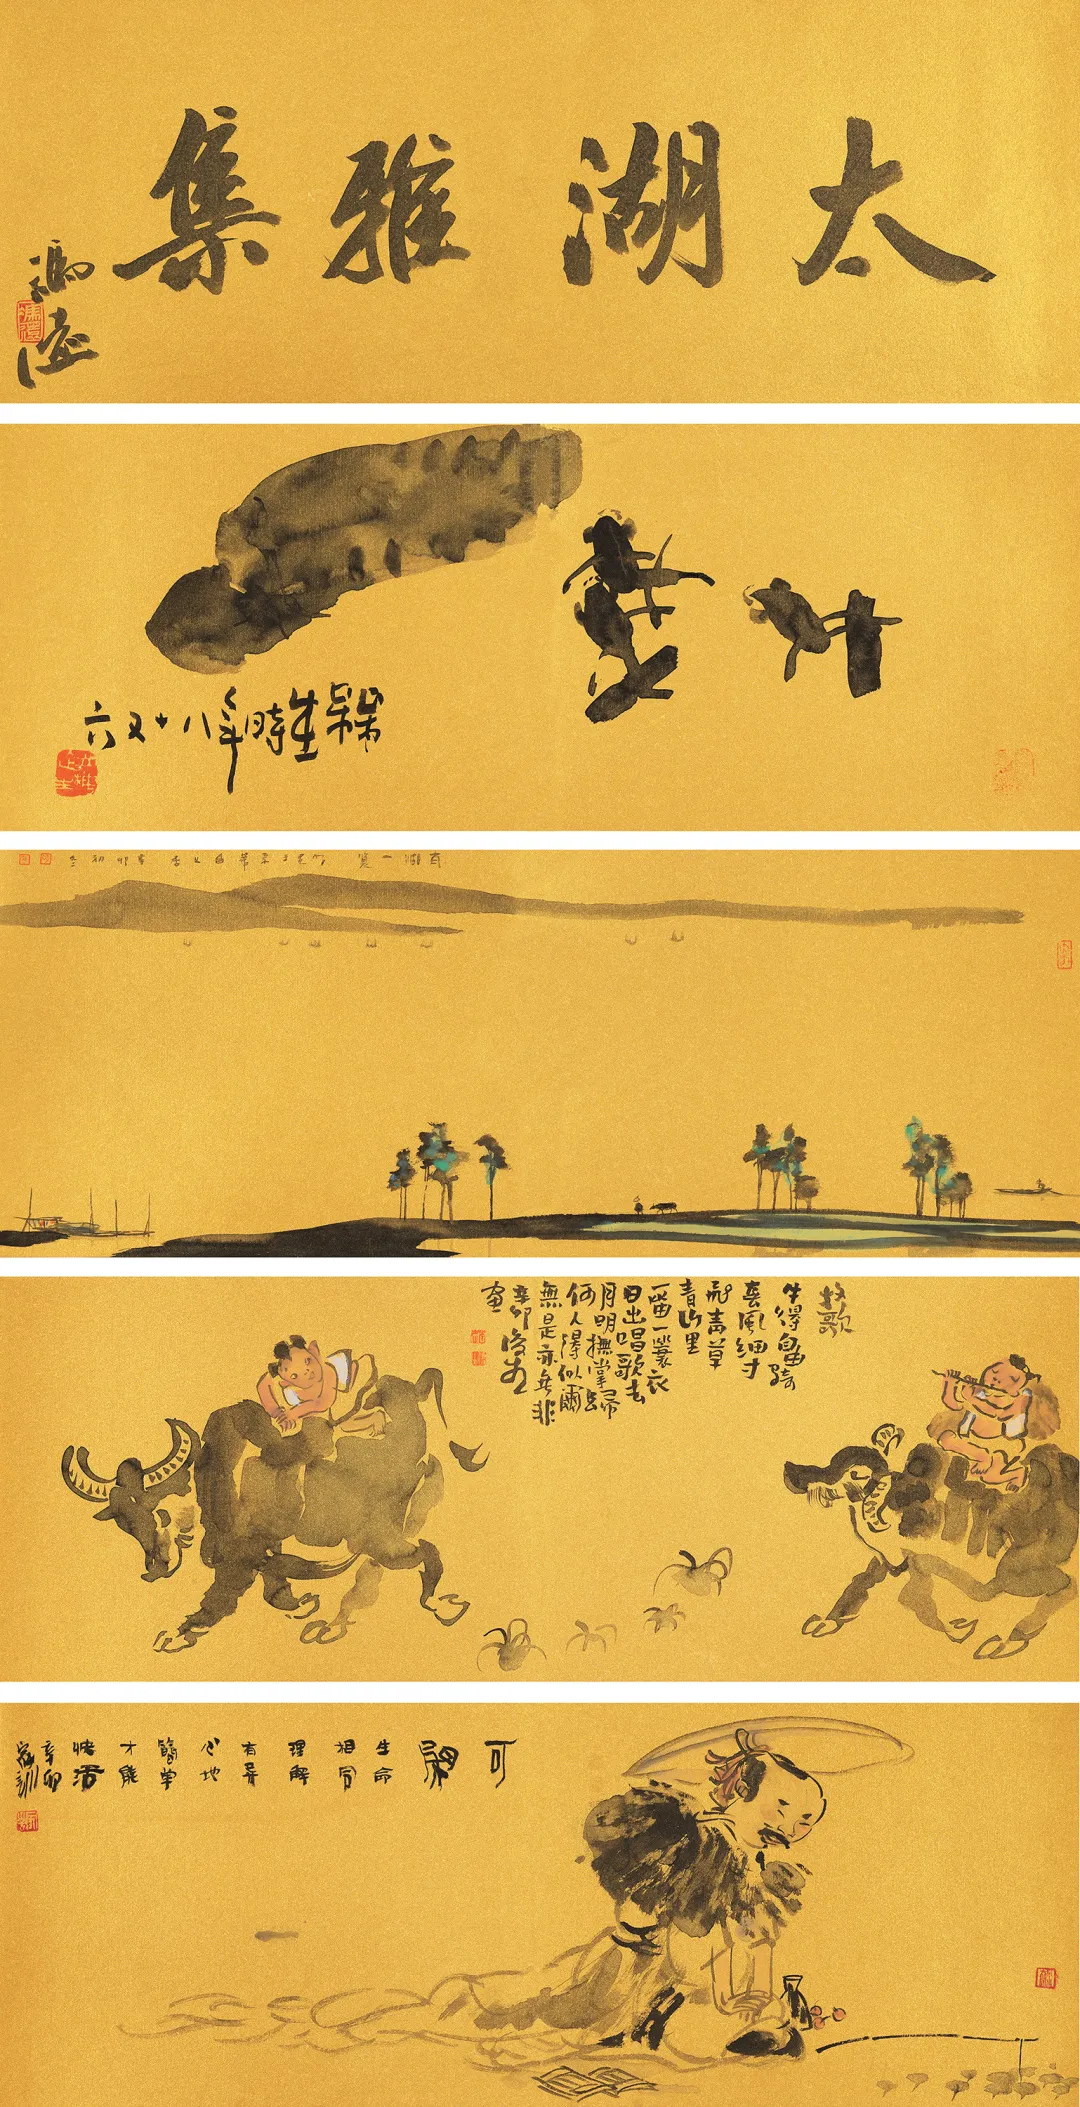 太湖雅集
馮遠
槑生時年八十又六
牧歌
牛得自由騎
春風細
飛青草
青山里
一笛一蓑衣
日出唱歌去
月明撫掌歸
何人得似爾
無是亦無非
辛卯
畫
可閑
生命
相同
理解
有異
心地
簡單
才能
快活
辛卯
家訓